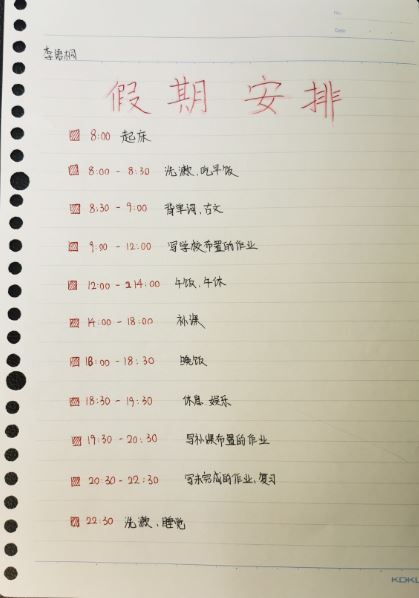 No.
Date
李语桐
假期安排
8:00 起床
8:00 - 8:30 洗漱、吃早饭
8:30 - 9:00 背单词、古文
9:00 - 12:00 写学校布置的作业
12:00 - 14:00 午饭、午休
14:00 - 18:00 补课
18:00 - 18:30 晚饭
18:30 - 19:30 休息、娱乐
19:30 - 20:30 写补课布置的作业
20:30 - 22:30 写未完成的作业、复习
22:30 洗漱、睡觉